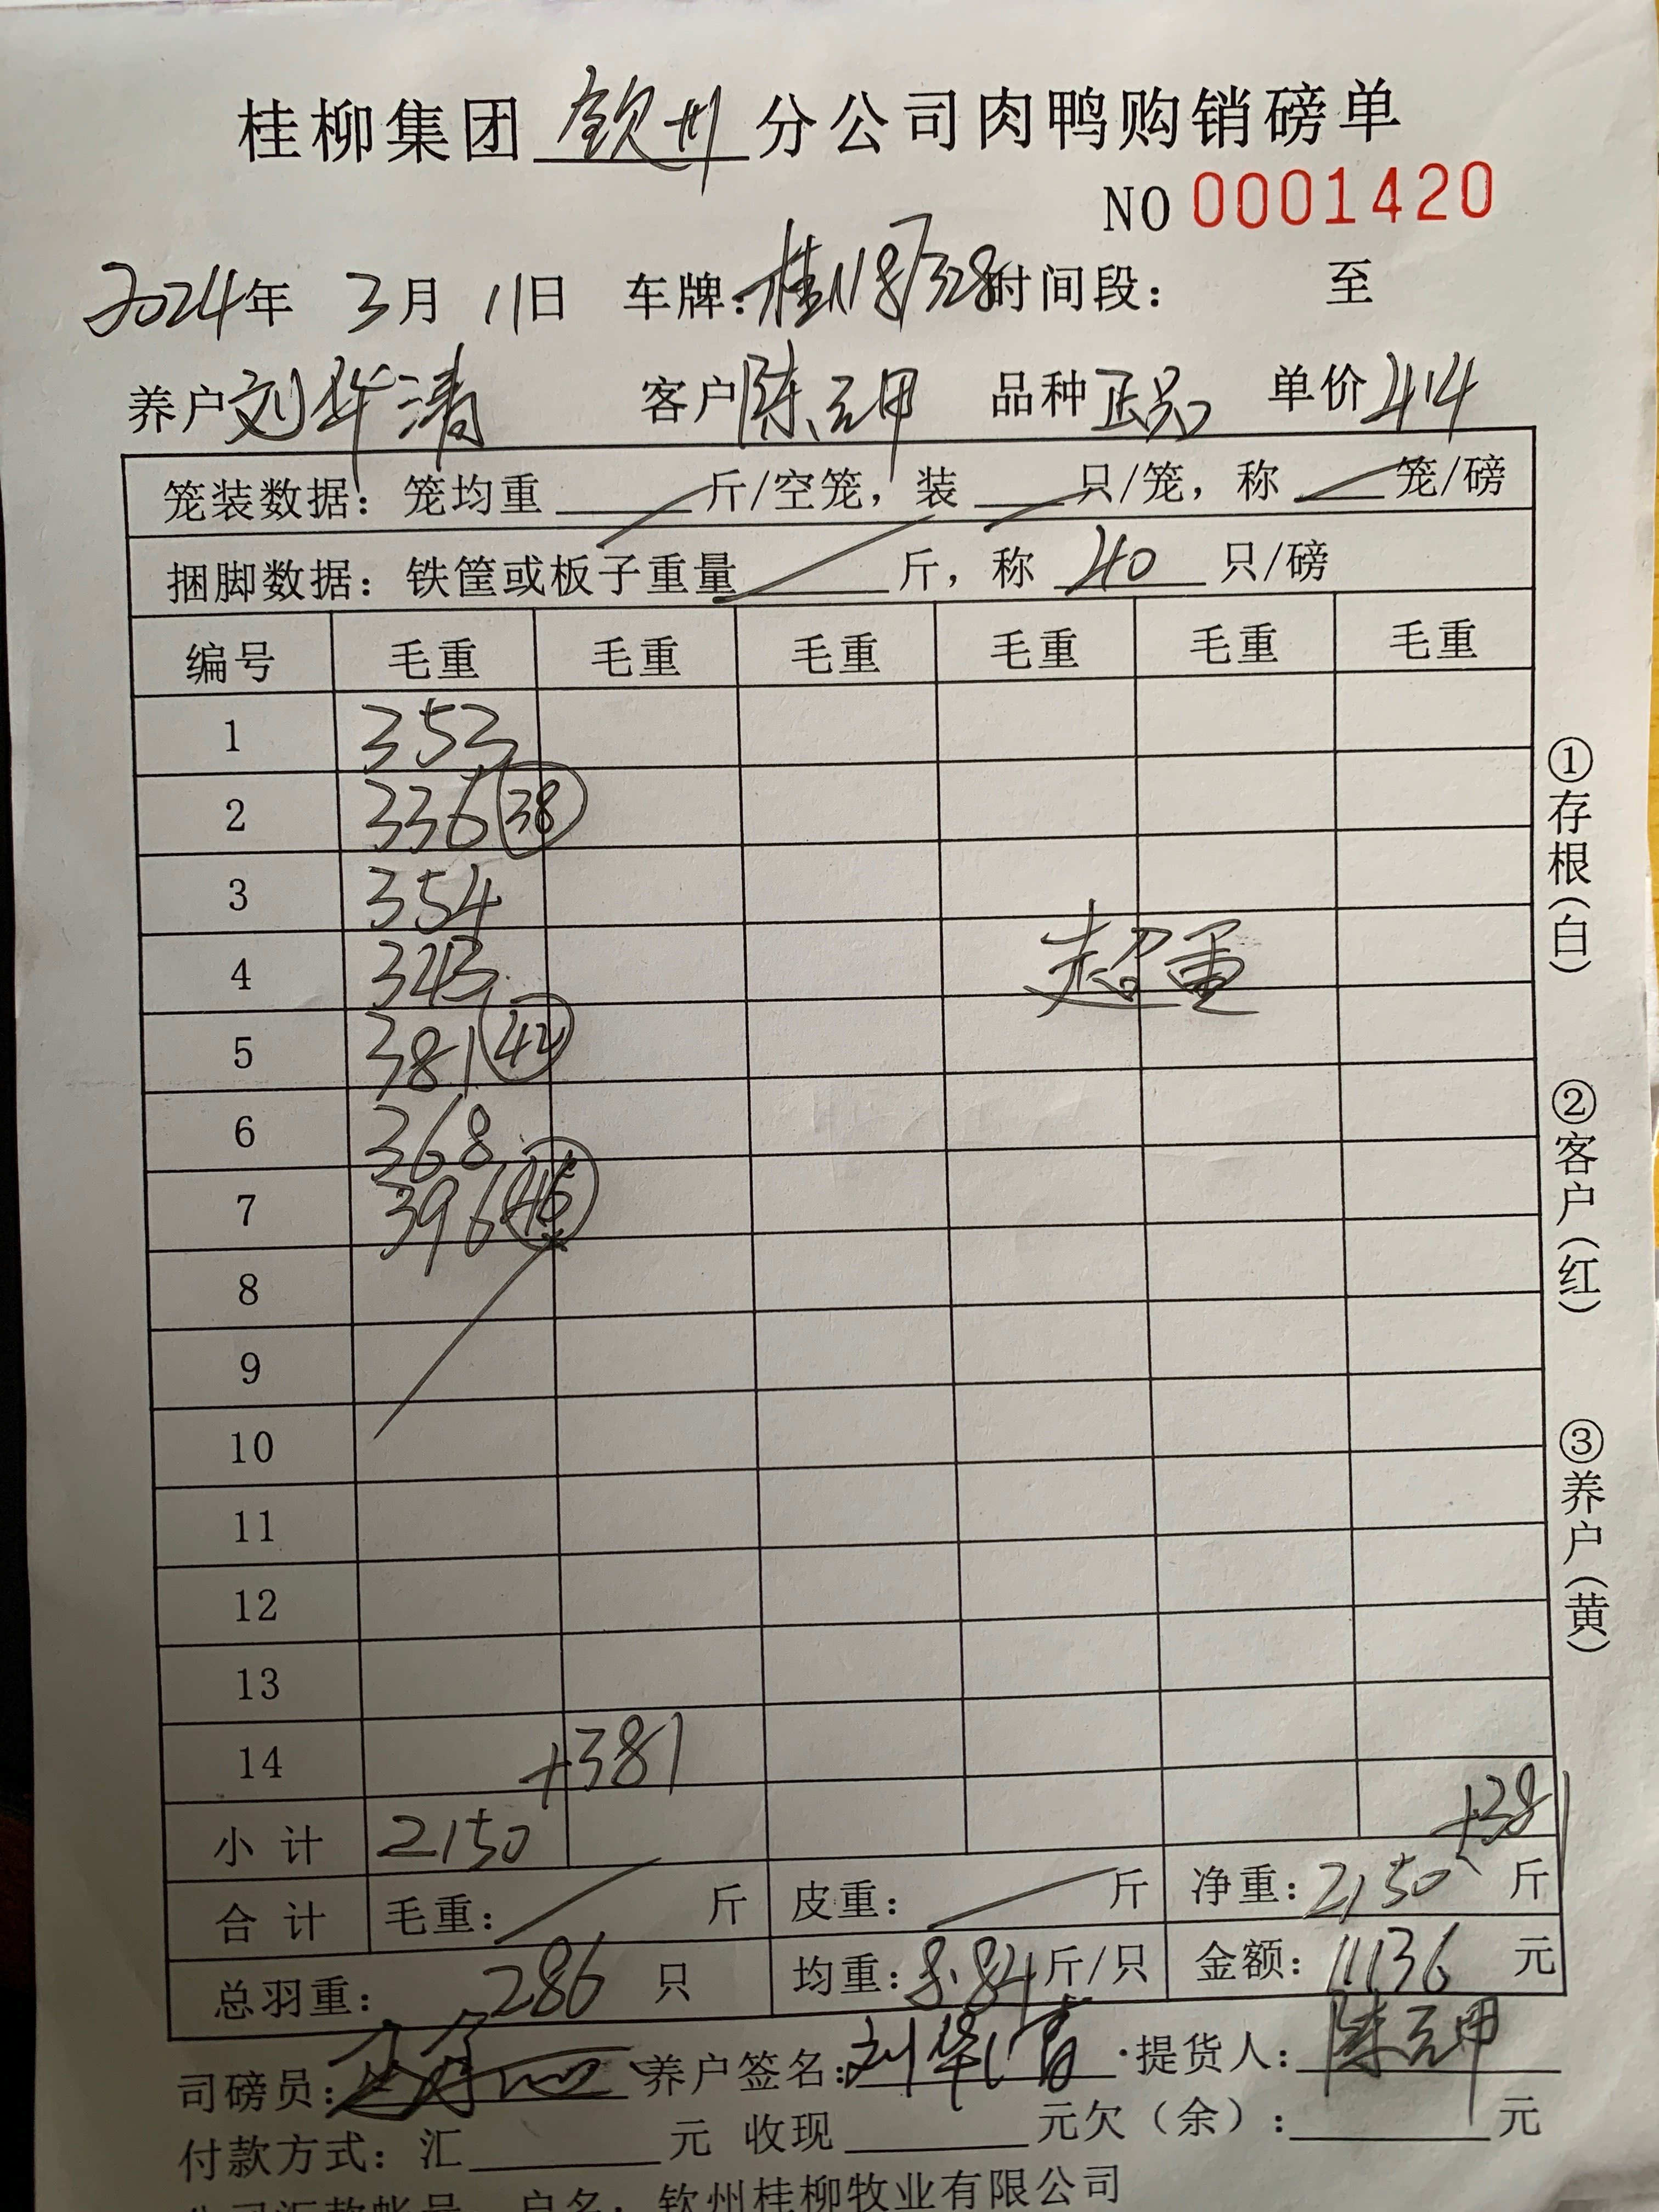 桂柳集团 钦州 分公司肉鸭购销磅单
NO 0001420
2024年 3月 11日 车牌:桂N87328 时间段: 至
养户 刘华清 客户 陈元甲 品种 正品 单价 4.4
笼装数据: 笼均重 斤/空笼, 装 只/笼, 称 笼/磅
捆脚数据: 铁筐或板子重量 斤, 称 40 只/磅
编号 毛重 毛重 毛重 毛重 毛重 毛重
1 353
2 336 38
3 354
4 343
超重
5 381 42
6 368
7 396
8
9
10
11
12
13
14 +381
小计 2150 +381
合计 毛重: 斤 皮重: 斤 净重: 2150 斤
总羽重: 286 只 均重: 8.84 斤/只 金额: 11136 元
司磅员: 养户签名: 刘华清 提货人: 陈元甲
付款方式: 汇 元 收现 元欠(余): 元
户名: 钦州桂柳牧业有限公司
①存根(白)
②客户(红)
③养户(黄)